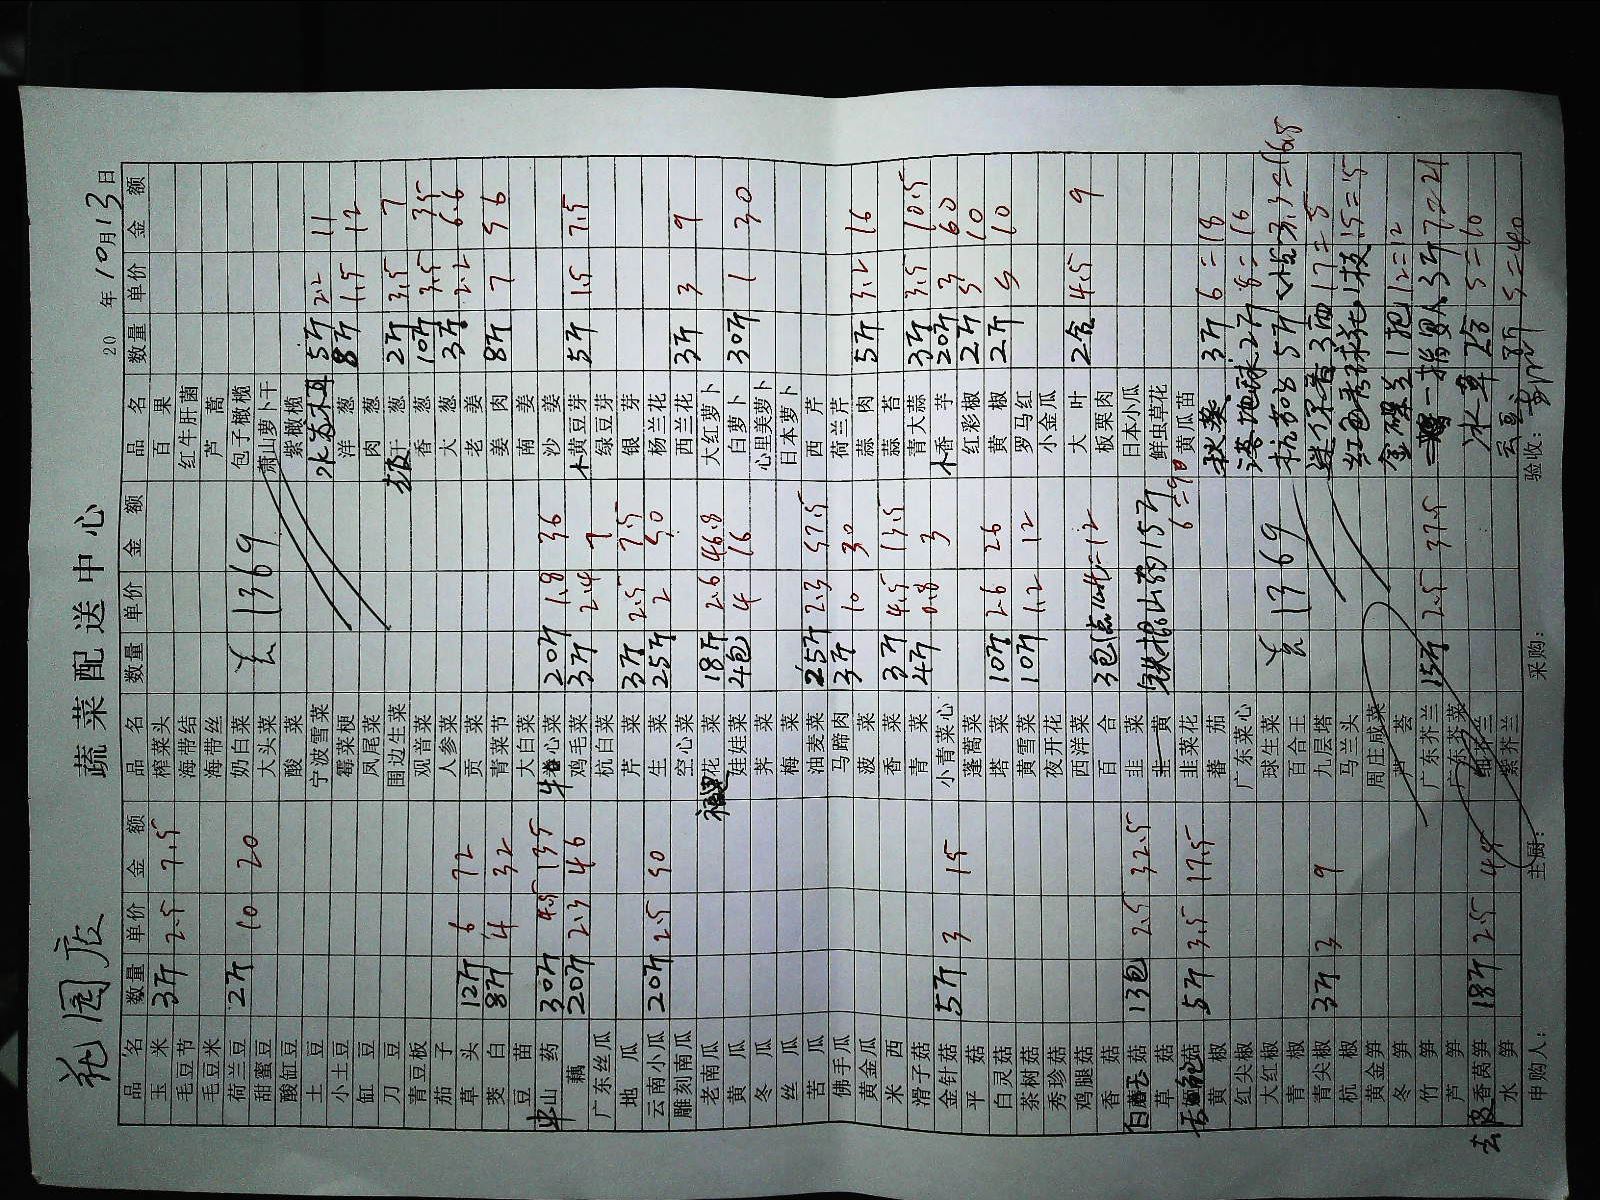 花园店
蔬菜配送中心
20 年10月13日
品名 数量 单价 金额 品名 数量 单价 金额 品名 数量 单价 金额
玉米 3斤 2.5 7.5 榨菜头 百果
毛豆节 海带结 红牛肝菌
毛豆米 海带丝 芦蒿
荷兰豆 2斤 10 20 奶白菜 1369 包子橄榄
甜蜜豆 大头菜 萧山萝卜干
酸缸豆 酸菜 紫橄榄
土豆 宁波雪菜 水发木耳 5斤 2.2 11
小土豆 霉菜梗 洋葱 8斤 1.5 12
缸豆 凤尾菜 肉葱
刀豆 围边生菜 干葱 2斤 3.5 7
青豆板 观音菜 香葱 10斤 3.5 35
茄子 人参菜 大葱 3斤 2.2 6.6
草头 12斤 6 72 贡菜 老姜
茭白 8斤 4 32 青菜节 姜肉 8斤 7 56
豆苗 大白菜 南姜
山药 30斤 4.5 135 牛心菜 20斤 1.8 36 沙姜
藕 20斤 2.3 46 鸡毛菜 3斤 2.4 7 黄豆芽 5斤 1.5 7.5
广东丝瓜 杭白菜 绿豆芽
地瓜 芹菜 3斤 2.5 7.5 银芽
云南小瓜 20斤 2.5 50 生菜 25斤 2 50 杨兰花
雕刻南瓜 空心菜 西兰花 3斤 3 9
老南瓜 花菜 18斤 2.6 46.8 大红萝卜
黄瓜 娃娃菜 4包 4 16 白萝卜 30斤 1 30
冬瓜 荠菜 心里美萝卜
丝瓜 梅菜 日本萝卜
苦瓜 油麦菜 25斤 2.3 57.5 西芹
佛手瓜 马蹄肉 3斤 10 30 荷兰芹
黄金瓜 菠菜 蒜肉 5斤 3.2 16
米西 香菜 3斤 4.5 13.5 蒜苔
滑子菇 青菜 4斤 0.8 3 青大蒜 3斤 3.5 10.5
金针菇 5斤 3 15 小青菜心 香芋 20斤 3 60
平菇 蓬蒿菜 红彩椒 2斤 5 10
白灵菇 塔菜 10斤 2.6 26 黄椒 2斤 5 10
茶树菇 黄雪菜 10斤 1.2 12 罗马红
秀珍菇 夜开花 小金瓜
鸡腿菇 西洋菜 大叶 2盒 4.5 9
香菇 百合 3包 =12 板栗肉
白玉菇 13包 2.5 32.5 韭菜 日本小瓜
草菇 韭黄 铁棍山药15斤 6=90 鲜虫草花
菇 5斤 3.5 17.5 韭菜花 黄瓜苗
黄椒 蕃茄 秋葵 3斤 6=18
红尖椒 广东菜心 2斤 8=16
大红椒 球生菜 1369 5斤 3.3=16.5
青椒 百合王
青尖椒 3斤 3 9 九层塔 1枝 15=15
杭椒 马兰头
黄金笋 周庄咸菜 1把 12=12
冬笋 芦荟
竹笋 广东芥兰 15斤 2.5 37.5 3斤 7 21
芦笋 广东芥菜
去皮香莴笋 18斤 2.5 45 细芥兰 冰草 2盒 5=10
水笋 紫芥兰 5=40
申购人： 主厨： 采购： 验收：